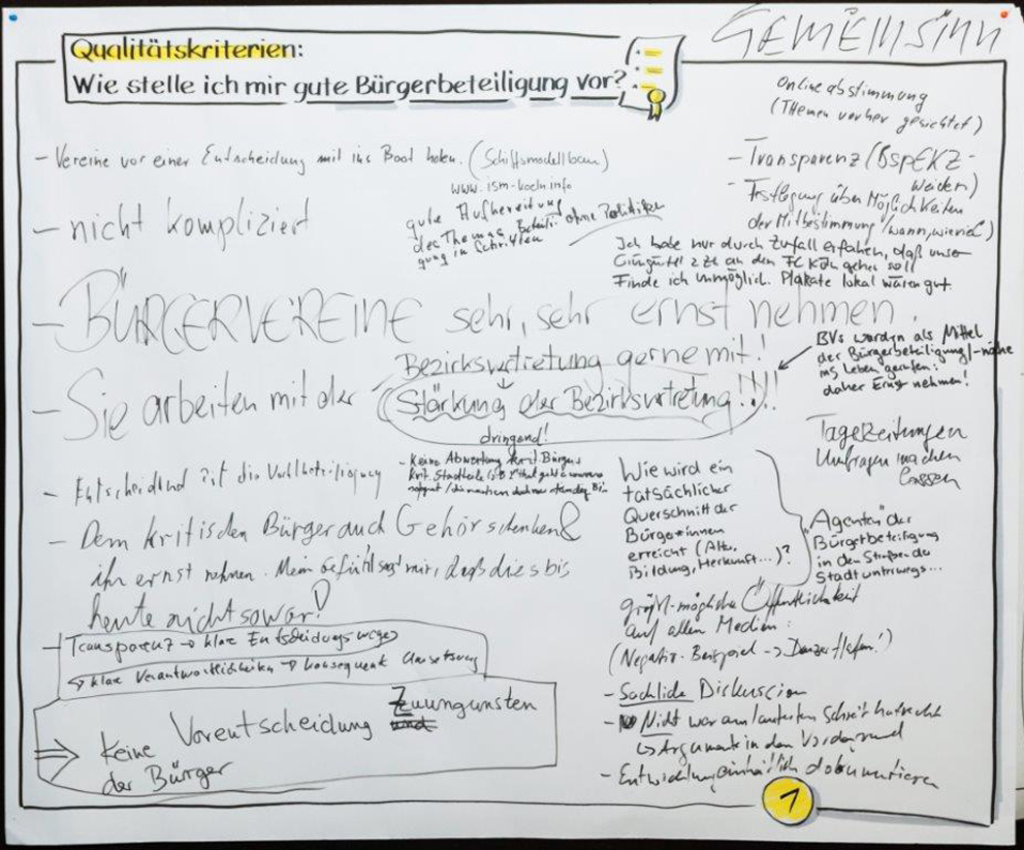 GEMEINSINN
Qualitätskriterien:
Wie stelle ich mir gute Bürgerbeteiligung vor?
- Vereine vor einer Entscheidung mit ins Boot holen. (Schiffsmodellbau)
www.ism-koeln.info
- nicht kompliziert
gute Aufbereitung
des Themas, Beteili-
gung in Schritten
ohne Politiker
- BÜRGERVEREINE sehr, sehr ernst nehmen.
- Sie arbeiten mit der
Bezirksvertretung gerne mit!
Stärkung der Bezirksvertretung!!!!
dringend!
BVs wurden als Mittel
der Bürgerbeteiligung/-nähe
ins Leben gerufen:
daher Ernst nehmen!
- Entscheidend ist die
- Keine Abwertung krit. Bürger
krit. Stadtteile
- Dem kritischen Bürger auch Gehör schenken &
ihn ernst nehmen. Mein Gefühl sagt mir, daß dies bis
heute nicht so war!
- Transparenz → klare Entscheidungswege
→ klare Verantwortlichkeiten → konsequent Umsetzung
⇒ Keine Vorentscheidung Zuungunsten
der Bürger
Onlineabstimmung
(Themen vorher gesichtet)
- Transparenz (Bsp EKZ-
Weiden)
- Festlegung über Möglichkeiten
der Mitbestimmung (wann, wieviel)
Ich habe nur durch Zufall erfahren, daß unser
Grüngürtel z.T. an den FC Köln gehen soll
Finde ich unmöglich. Plakate lokal wären gut
Tageszeitungen
Umfragen machen
lassen
Wie wird ein
tatsächlicher
Querschnitt der
Bürger*innen
erreicht (Alter,
Bildung, Herkunft...)?
"Agenten" der
Bürgerbeteiligung
in den Straßen der
Stadt unterwegs...
größt-mögliche Öffentlichkeit
auf allen Medien:
(Negativ-Beispiel → Deutzer Hafen!)
- Sachliche Diskussion
- Nicht wer am lautesten schreit hat recht
↳ Argumente in den Vordergrund
- Entwicklung einheitlich dokumentieren
1